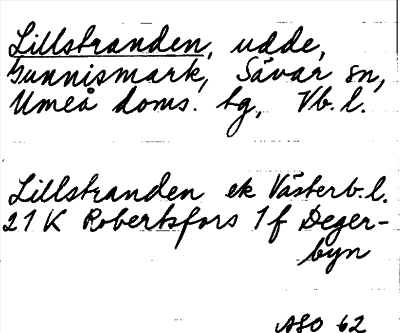 Lillstranden, udde,
Gunnismark, Sävar sn,
Umeå doms. tg, Vb. l.
Lillstranden ek Västerb. l.
21 K Robertsfors 1 f Deger-
byn
ASO 62